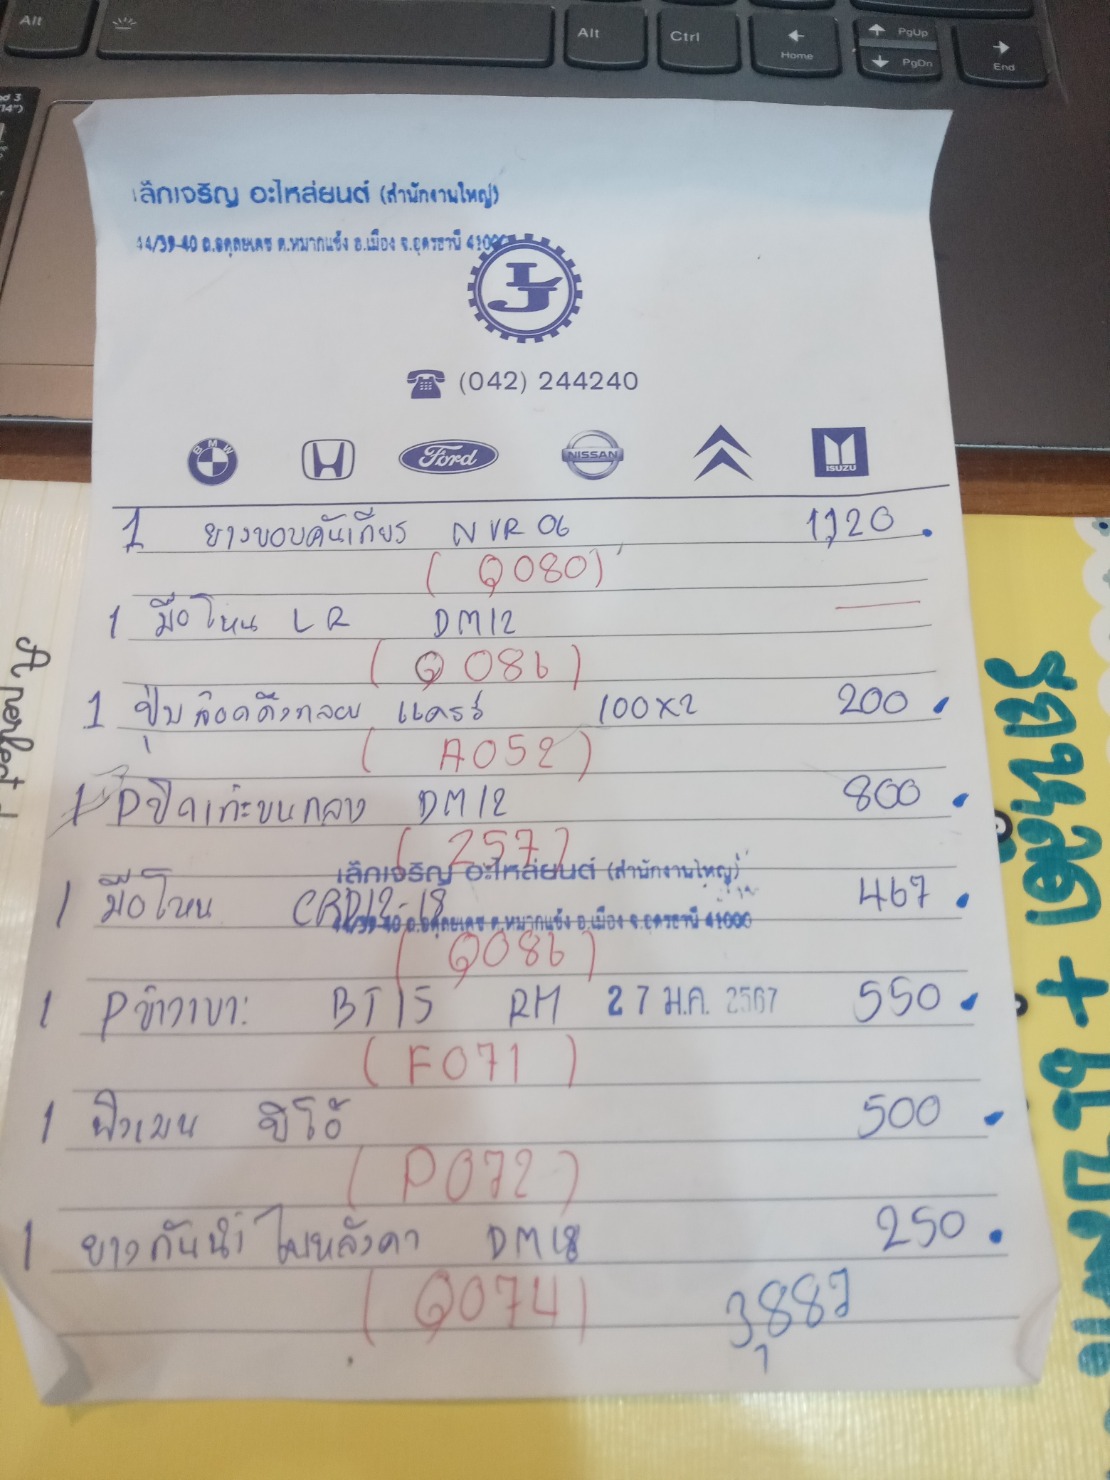 Alt
Alt
Ctrl
Home
PgUp
PgDn
End
14")
เล็กเจริญ อะไหล่ยนต์ (สำนักงานใหญ่)
44/39-40 ถ.อดุลยเดช ต.หมากแข้ง อ.เมือง จ.อุดรธานี 41000
LJ
(042) 244240
BMW
Ford
NISSAN
ISUZU
1 ยางขอบคันเกียร์ NVR 06 1,120
(Q080)
1 มือโหน LR DM12
(Q086)
1 ปุ่มล็อคดึงกลอน แคริ่ 100x2 200
(A052)
1 Pปิดเท้าบนกลาง DM12 800
(257)
เล็กเจริญ อะไหล่ยนต์ (สำนักงานใหญ่)
1 มือโหน CRD12-18 467
44/39-40 ถ.อดุลยเดช ต.หมากแข้ง อ.เมือง จ.อุดรธานี 41000
(Q086)
1 Pข้างเบาะ BT15 RM 27 ม.ค. 2567 550
(F071)
1 500
(P072)
1 ยางกันน้ำ ในหลังคา DM18 250
(Q074)
3,887
A perfect